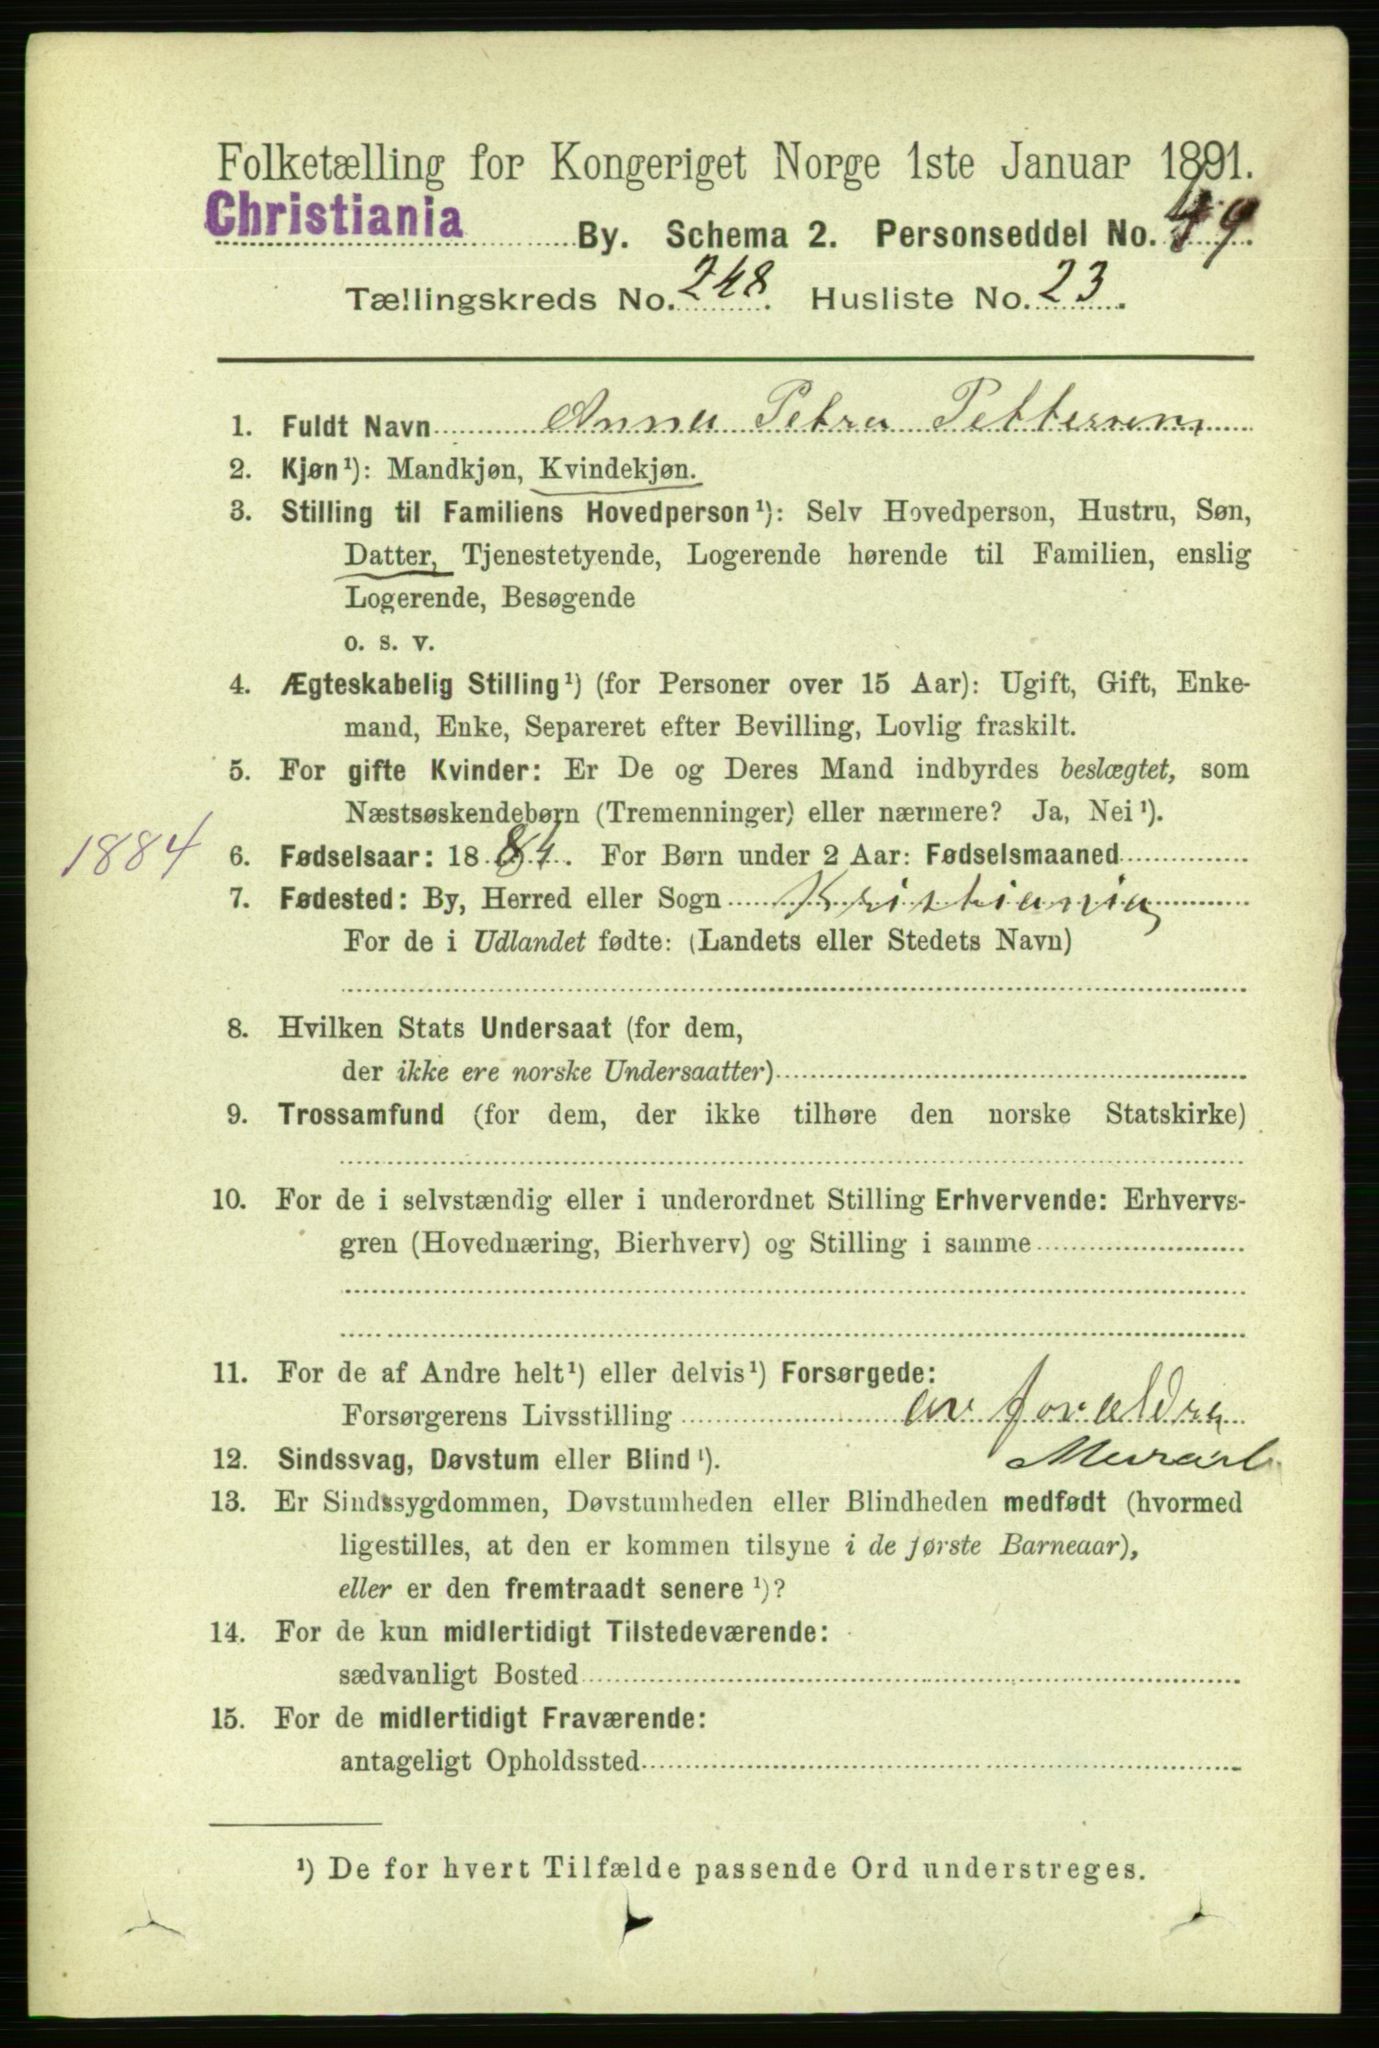 Folketælling for Kongeriget Norge 1ste Januar 1891.
Christiania By. Schema 2. Personseddel No. 49.
Tællingskreds No. 248. Husliste No. 23.
1. Fuldt Navn Anna Petra Pettersen
2. Kjøn¹): Mandkjøn, Kvindekjøn.
3. Stilling til Familiens Hovedperson¹): Selv Hovedperson, Hustru, Søn,
Datter, Tjenestetyende, Logerende hørende til Familien, enslig
Logerende, Besøgende
o. s. v.
4. Ægteskabelig Stilling¹) (for Personer over 15 Aar): Ugift, Gift, Enke-
mand, Enke, Separeret efter Bevilling, Lovlig fraskilt.
5. For gifte Kvinder: Er De og Deres Mand indbyrdes beslægtet, som
Næstsøskendebørn (Tremenninger) eller nærmere? Ja, Nei¹).
1884 6. Fødselsaar: 1884. For Børn under 2 Aar: Fødselsmaaned
7. Fødested: By, Herred eller Sogn Kristiania
For de i Udlandet fødte: (Landets eller Stedets Navn)
8. Hvilken Stats Undersaat (for dem,
der ikke ere norske Undersaatter)
9. Trossamfund (for dem, der ikke tilhøre den norske Statskirke)
10. For de i selvstændig eller i underordnet Stilling Erhvervende: Erhvervs-
gren (Hovednæring, Bierhverv) og Stilling i samme
11. For de af Andre helt¹) eller delvis¹) Forsørgede:
Forsørgerens Livsstilling av foraldra
12. Sindssvag, Døvstum eller Blind¹).
13. Er Sindssygdommen, Døvstumheden eller Blindheden medfødt (hvormed
ligestilles, at den er kommen tilsyne i de første Barneaar),
eller er den fremtraadt senere¹)?
14. For de kun midlertidigt Tilstedeværende:
sædvanligt Bosted
15. For de midlertidigt Fraværende:
antageligt Opholdssted
¹) De for hvert Tilfælde passende Ord understreges.